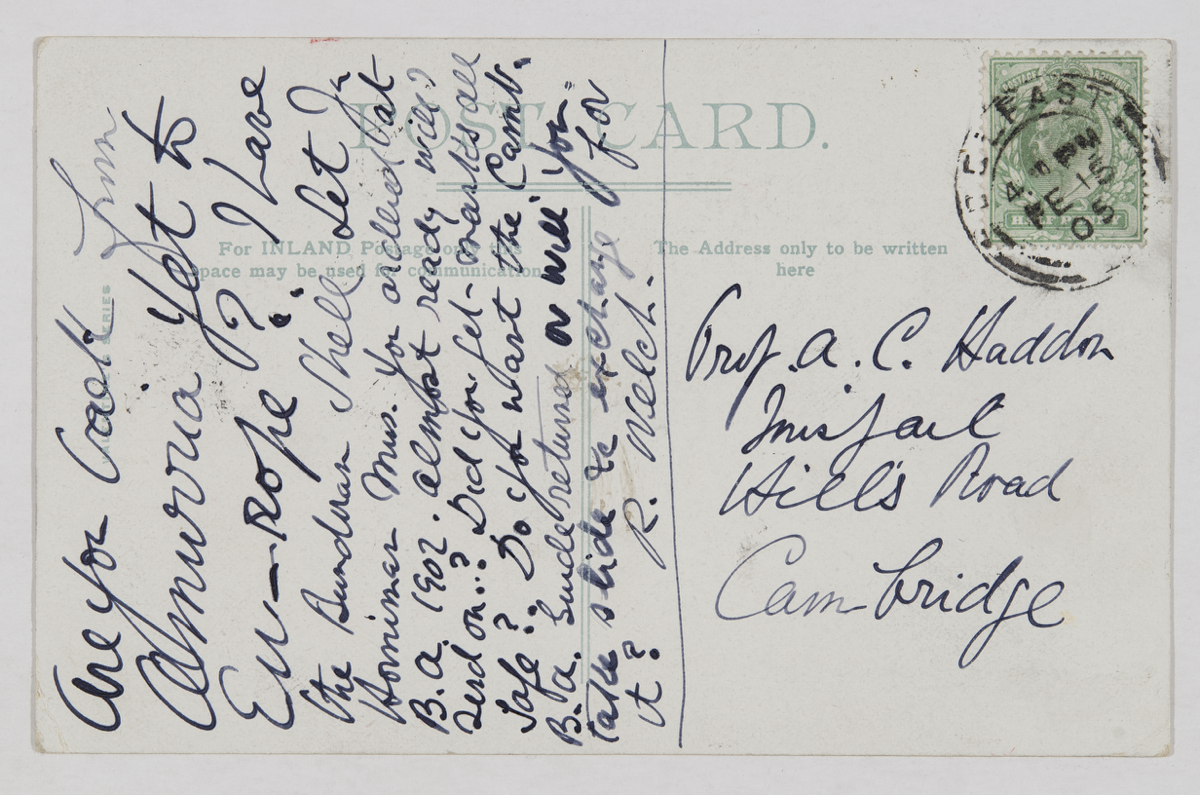 POST CARD.
For INLAND Postage only this
space may be used for communication
The Address only to be written
here
BELFAST
4. PM
FE 15
05
Are you back from
Amuria yet to
Eu-rope? I have
the Bundoran Shell Set In
Horniman Mus. you ordered that
B.A. 1902. almost ready will I
send on..? Did you get vasits all
safe? Do you want the Camb.
B.A. Guide returned or will you
take slide &c exchange for
it? R. Welch.
Prof. A. C. Haddon
Inisfail
Hills Road
Cambridge